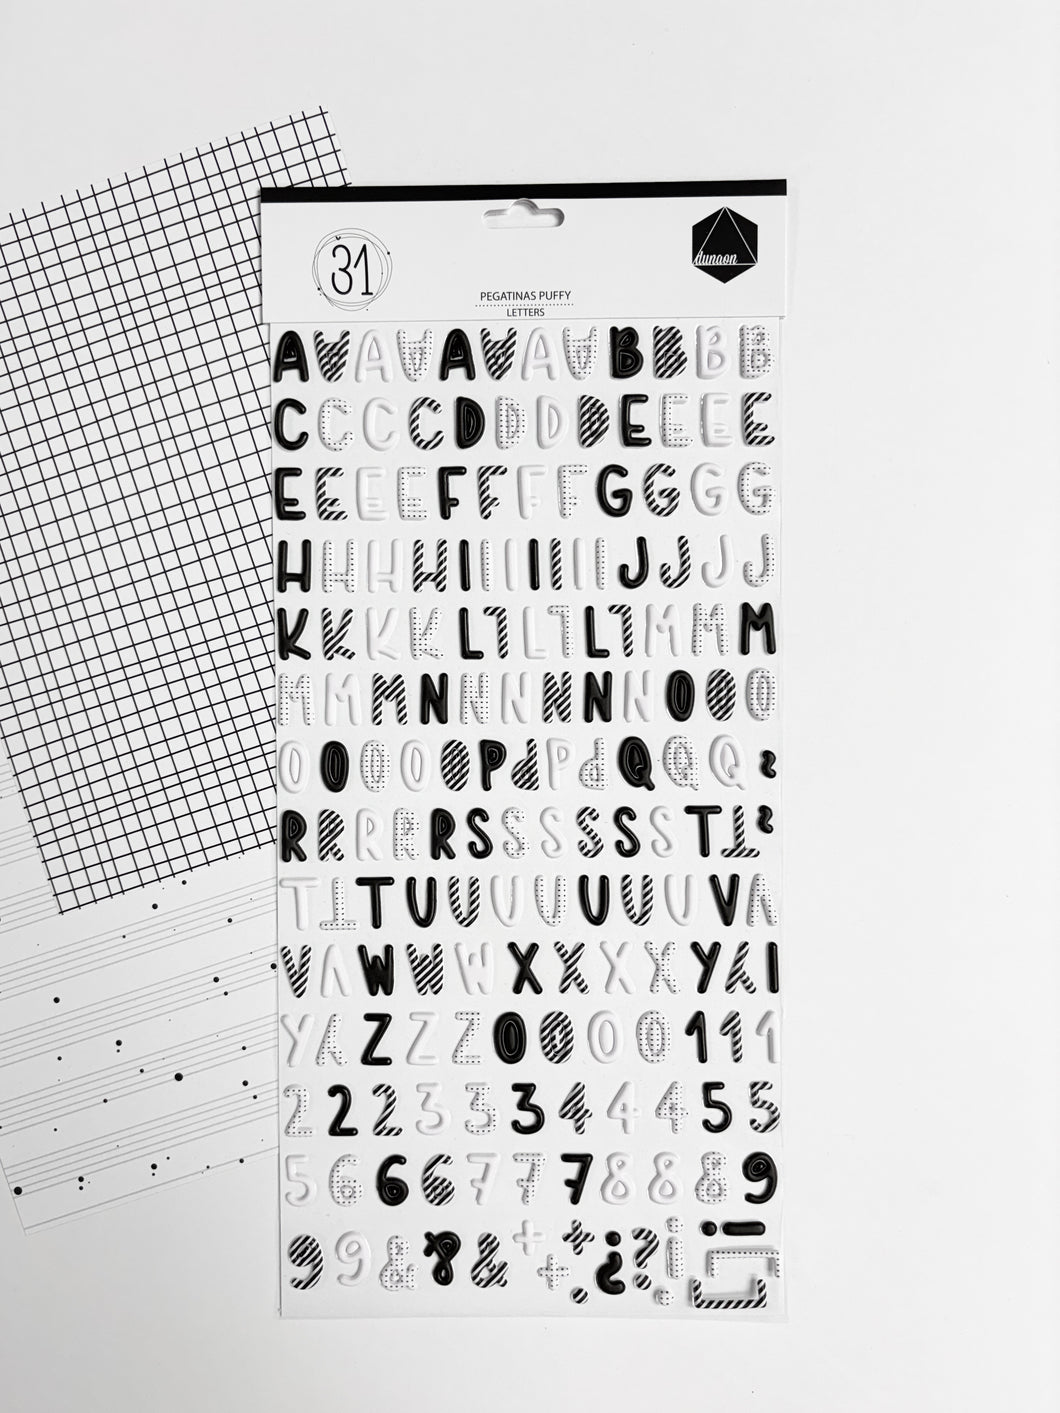 31
dunaon
PEGATINAS PUFFY
LETTERS
A A A A A A A A B B B B
C C C C D D D D E E E E
E E E E F F F F G G G G
H H H H I I I I I I I J J J J
K K K K L L L L L L M M M
M M M N N N N N N O O O
O O O O O P P P P Q Q Q ~
R R R R R S S S S S S T T ~
T T T U U U U U U U V V
V V W W W X X X X Y Y I
Y Y Z Z Z 0 0 0 0 1 1 1
2 2 2 3 3 3 4 4 4 5 5
5 6 6 6 7 7 7 8 8 8 9
9 9 & & & + + + ¿ ? ¡